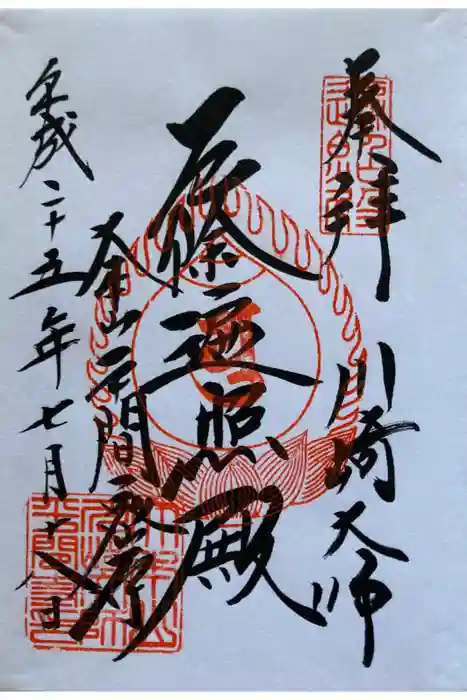 奉拝 川崎大師
厄除遍照殿
大本山平間
平成二十五年七月十八日